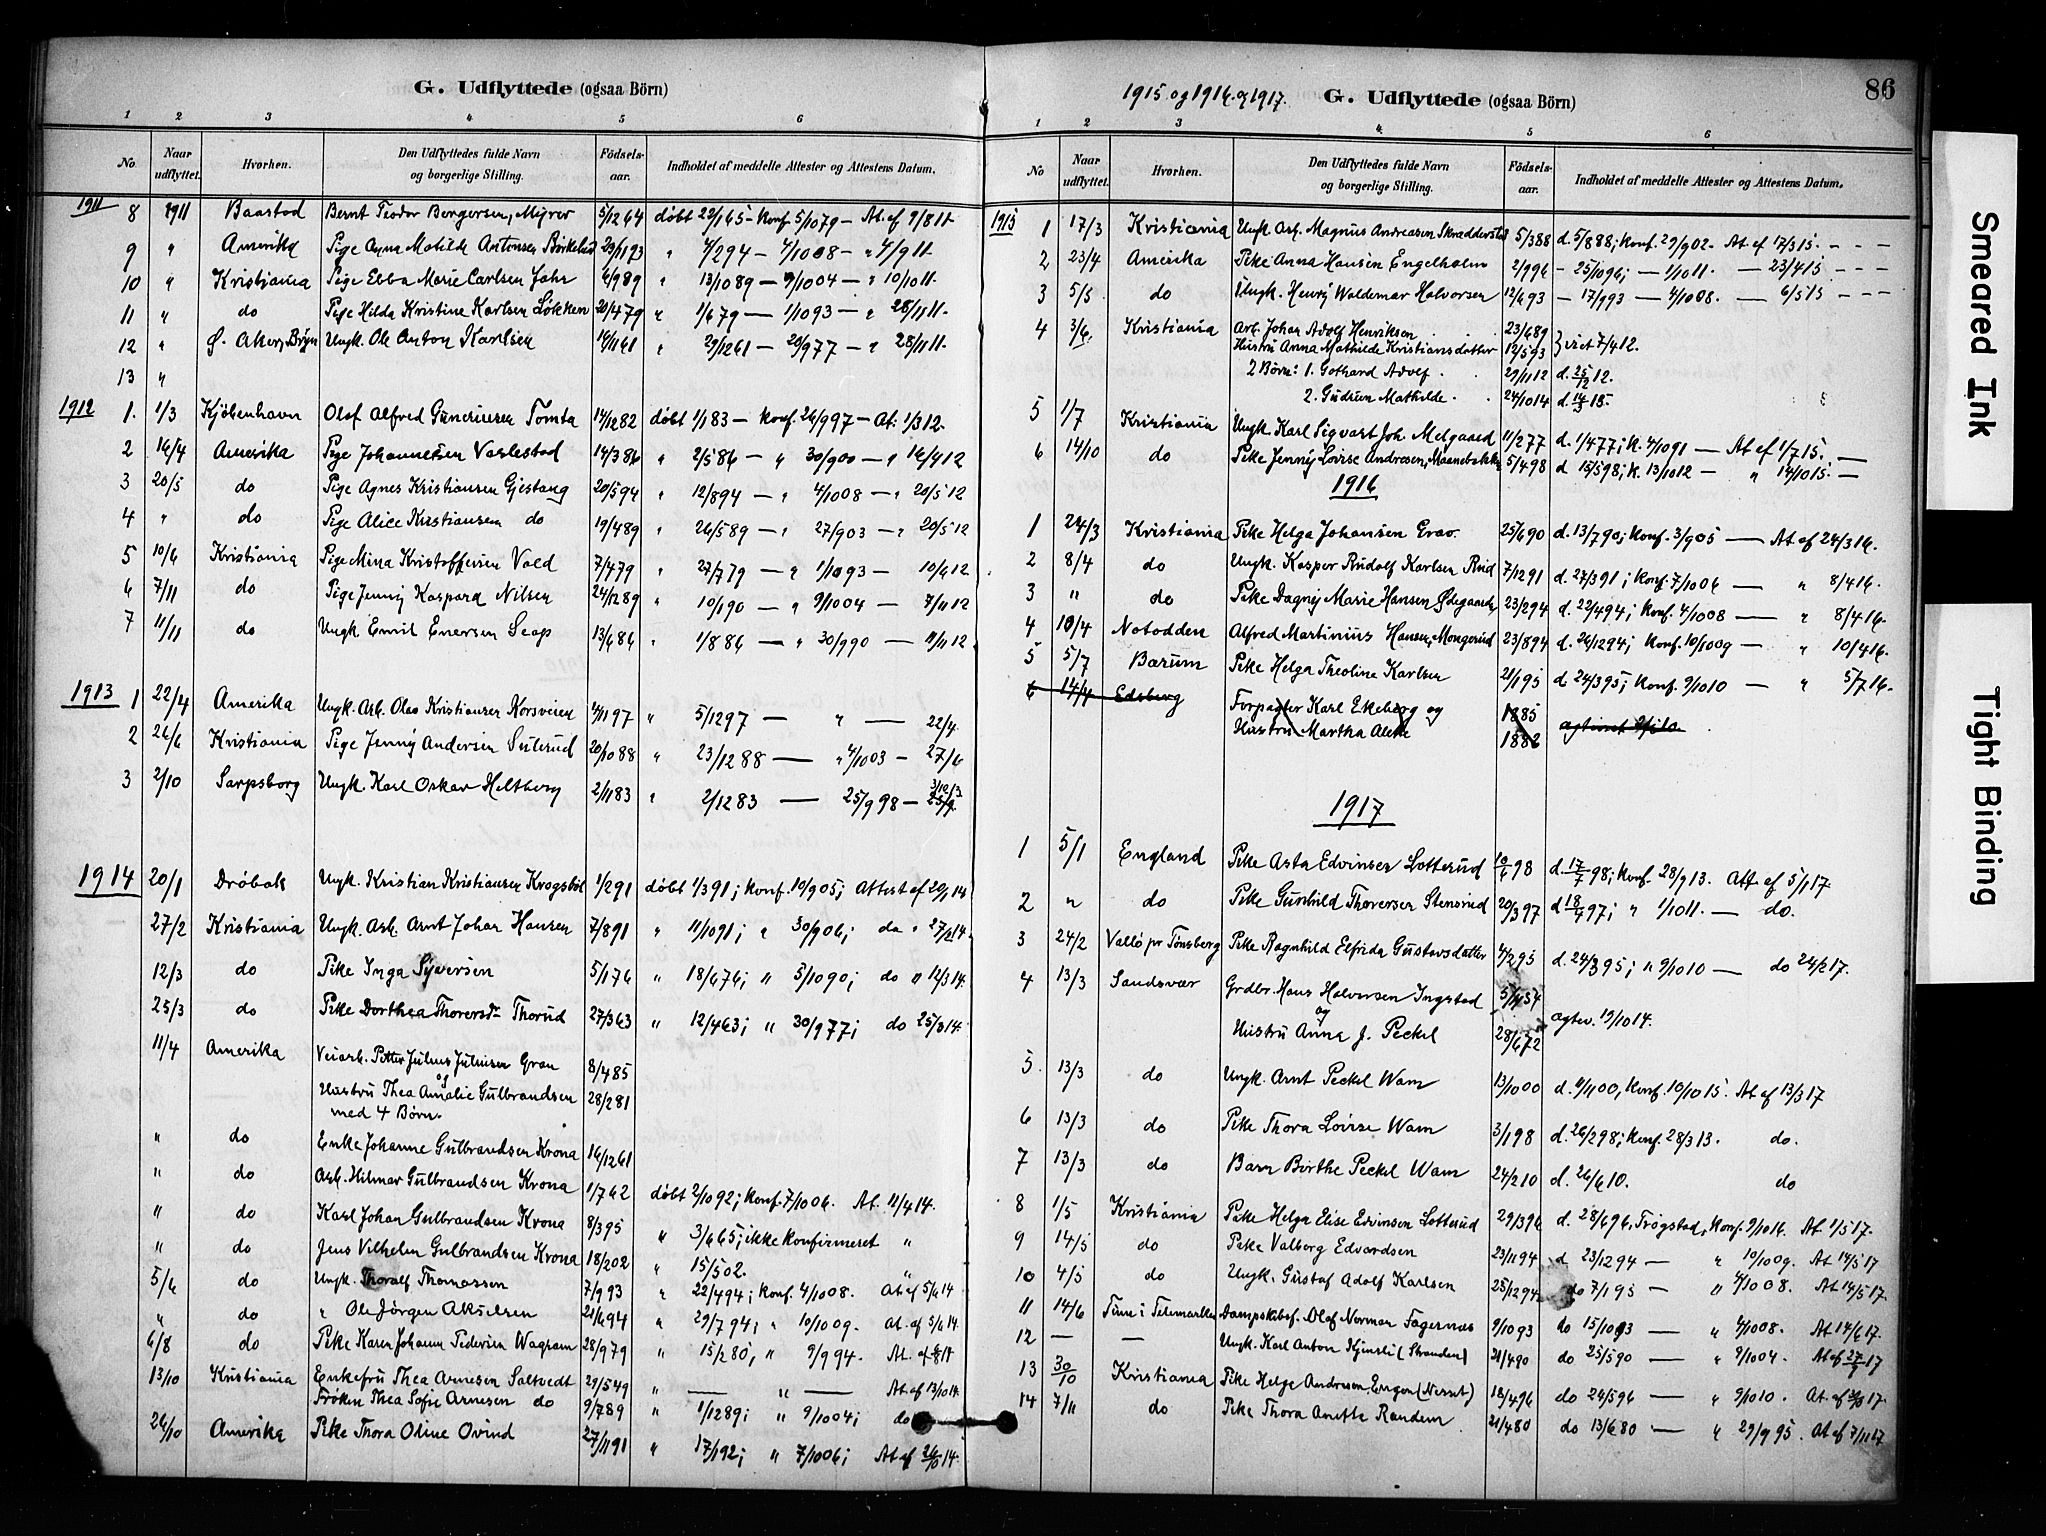 G. Udflyttede (ogsaa Börn)
1 2 3 4 5 6
No. Naar udflyttet. Hvorhen. Den Udflyttedes fulde Navn og borgerlige Stilling. Födsels-aar. Indholdet af meddelte Attester og Attestens Datum.
1911 8 1911 Baastad Bernt Teodor Bergersen, Myrer 5/1264 döbt 22/165 - Konf. 5/1079 - At. af 9/811
9 " Amerika Pige Agna Matilde Antonsen Birkelund 29/1193 " 4/294 - 4/1008 - " 4/911.
10 " Kristiania Pige Ebba Marie Carlsen Jahr 6/989 " 13/1089 - 9/1004 - " 10/1011.
11 " do Pige Hilda Kristine Karlsen Løkken 20/479 " 1/679 - 1/1093 - " 28/1111.
12 " Ø. Aker, Bryn Ungk. Ole Anton Karlsen 14/1161 " 29/1261 - 20/977 - " 28/1111.
13 "
1912 1. 1/3 Kjöbenhavn Olaf Alfred Guneriusen Tomta 14/1282 döbt 1/183 - Konf. 26/997 - At. 1/312.
2 16/4 Amerika Pige Johannessen Varlestad 14/386 " 2/586 - " 30/900 - " 16/412
3 20/5 do Pige Agnes Kristiansen Gjestang 20/594 " 12/894 - " 4/1008 - " 20/512
4 " do Pige Alice Kristiansen do 19/489 " 26/589 - " 27/903 - " 20/512
5 10/6 Kristiania Pige Mina Kristoffersen Vold 7/479 " 27/779 - " 1/1093 - 10/612
6 7/11 do Pige Jenny Kaspara Nilsen 24/1289 " 10/190 - " 9/1004 - 7/1112
7 11/11 do Ungk Emil Enersen Seop 13/686 " 1/886 - " 30/990 - 11/1112
1913 1 22/4 Amerika Ungk. Arb. Olav Kristiansen Korsveien 4/1197 " 5/1297 - " - 22/4
2 26/6 Kristiania Pige Jenny Andersen Sulerud 20/1088 " 23/1288 - " 4/1003 - 27/6
3 2/10 Sarpsborg Ungk. Karl Oskar Heltberg 2/1183 " 2/1283 - 25/998 - 3/1013
1914 20/1 Dröbak Ungk. Kristian Kristiansen Krogsböl 1/291 döbt 1/391; Konf. 10/905; Attest af 20/1 14
27/2 Kristiania Ungk. Arb. Arnt Johan Hansen 7/891 " 11/1091; " 30/906; do " 27/214.
12/3 do Pike Inga Syversen 5/176 " 18/676; " 5/1090; do " 12/314.
25/3 do Pike Dorthea Thorersd. Thorud 27/363 " 12/463; " 30/977; do 25/314.
11/4 Amerika Veiarb. Petter Julius Juliusen Grav 8/485
og
Hustru Thea Amalie Gulbrandsen 28/281
med 4 Børn.
" do Enke Johanne Gulbrandsen Krona 16/1261
" do Arb. Hilmar Gulbrandsen Krona 1/762 döbt 2/1092; Konf. 7/1006. At. 11/414.
" do Karl Johan Gulbrandsen Krona 8/395 " 3/665; ikke konfirmeret "
" do Jens Vilhelm Gulbrandsen Krona 18/202 " 15/502. "
5/6 do Ungk. Thoralf Thomassen 7/993 " 22/494; Konf. 4/1008. At. af 5/614
" do " Ole Jörgen Akselsen 21/694 " 29/794; " 10/1009. At. af 5/614
6/8 do Pike Karen Johanne Pedersen Wagram 28/979 " 15/280, " 9/994. At. af 6/814
13/10 Kristiania Enkefru Thea Arnesen Saltvedt 29/549 " - " - At af 13/1014.
Fröken Thea Sofie Arnesen do 9/789 " 1/1289; " 9/1004; do
26/10 Amerika Pike Thora Oline Ovind 27/1191 " 17/192; " 7/1006; At af 26/10 14.
1915 og 1916. og 1917. G. Udflyttede (ogsaa Börn) 86
1 2 3 4 5 6
No Naar udflyttet. Hvorhen. Den Udflyttedes fulde Navn og borgerlige Stilling. Födsels-aar. Indholdet af meddelte Attester og Attestens Datum.
1915 1 17/3 Kristiania Ungk. Arb. Magnus Andreasen Skradderstad 5/388 d. 5/888; Konf. 29/902. At. ef 17/315. - - -
2 23/4 Amerika Pike Anna Hansen Engelholm 2/996 - 25/1096; - 1/1011. - 23/415 - - -
3 5/5 do Ungk. Henry Waldemar Halvorsen 12/693 - 17/993 - 4/1008. - 6/515 - - -
4 3/6. Kristiania Arb. Johan Adolf Henriksen 23/689
Hustru Anna Mathilde Kristiansdatter 12/593 } viet 7/412.
2 Börn: 1. Gothard Adolf. 29/1112 d. 25/12 12.
2. Gudrun Mathilde. 24/1014 d. 14/3 15.
5 1/7 Kristiania Ungk. Karl Sigvart Joh. Melgaard 11/277 d. 1/477; K. 4/1091 - At ef 1/715. -
6 14/10 do Pike Jenny Lovise Andresen, Maanebakke 5/498 d 15/598; K. 13/1012 - " 14/1015. -
1916
1 24/3 Kristiania Pike Helga Johansen Grav. 25/690 d. 13/790; Konf. 3/905 - At af 24/316.
2 8/4 do Ungk. Kasper Rudolf Karlsen Rud 7/1291 d. 27/391; Konf. 7/1006 - " 8/416.
3 " do Pike Dagny Marie Hansen Ødegaard, 23/294 d. 22/494; Konf. 4/1008 - " 8/416.
4 10/4 Notodden Alfred Martinius Hansen, Mongerud 23/894 d. 26/1294; Konf. 10/1009 - " 10/416.
5 5/7 Bærum Pike Helga Theoline Karlsen 21/195 d 24/395; Konf. 9/1010 - " 5/716.
6 14/4 Edsberg Forpagter Karl Ekeberg og 1885
Hustru Martha Alette 1882
1917
1 5/1 England Pike Asta Edvinsen Lotterud 10/6 98 d. 17/7 98; Konf. 28/913. Att. af 5/117
2 " do Pike Gunhild Thoversen Stensrud 20/397 d 18/4 97; " 1/1011. - do.
3 24/2 Vallö pr Tønsberg Pike Ragnhild Elfrida Gustavsdatter 4/295 d. 24/395; " 9/1010 - do 24/217.
4 13/3 Sandsvær Grdbr. Hans Halvorsen Ingstad 5/454
og
Hustru Anna J. Peckel 28/672 agtev. 19/1014.
5. 13/3 do Ungk. Arnt Peckel Wam 13/1000 d. 11/1100, Konf. 10/1015. At af 13/317
6 13/3 do Pike Thora Lovise Wam 3/198 d. 26/298; Konf. 28/313. do.
7 13/3 do Barn Birthe Peckel Wam 24/210 d. 26/610. do
8 1/5 Kristiania Pike Helga Elise Edvinsen Lotterud 29/396 d. 28/696, Trøgstad, Konf. 9/1016. At. 1/517.
9 14/5 do Pike Valborg Edvardsen 23/1194 d 23/1294 - " 10/1009. At 14/517
10 4/5 do Ungk. Gustaf Adolf Karlsen 25/1294 do 7/195 - " 4/1008. At 14/517.
11 14/6 Tinn i Telemarken Dampskibsf. Olaf Norman Fagernæs 9/1093 do 15/1093 - " 4/1008. At 14/617.
12 - - Ungk. Karl Anton Kjinsli (Stranden) 21/490 do 25/590 - " 9/1004. At ef 27/9 17
13 30/10 Kristiania Pike Helga Andresen, Engen (Nesset) 18/496 do 24/596 - " 9/1010. At. af 30/10 17.
14 7/11 do Pike Thora Anette Randem 21/480 do 13/680 - " 29/995. At af 7/1117
Smeared Ink
Tight Binding